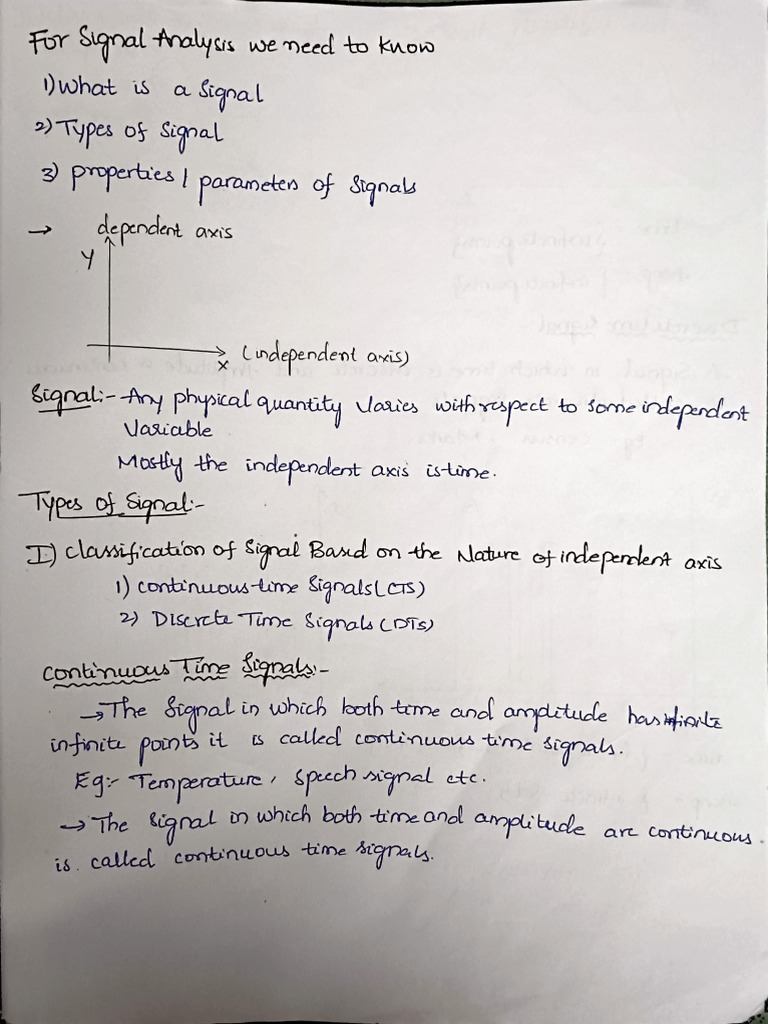 For Signal Analysis we need to know
1) What is a signal
2) Types of Signal
3) properties / parameters of signals
→ dependent axis
Y
X (independent axis)
Signal:- Any physical quantity varies with respect to some independent
Variable
Mostly the independent axis is time.
Types of Signal:-
I) Classification of Signal Based on the Nature of independent axis
1) continuous time Signals (CTS)
2) Discrete Time Signals (DTS)
Continuous Time Signals:-
→ The Signal in which both time and amplitude has
infinite points it is called continuous time signals.
Eg:- Temperature, speech signal etc.
→ The signal in which both time and amplitude are continuous
is called continuous time signals.